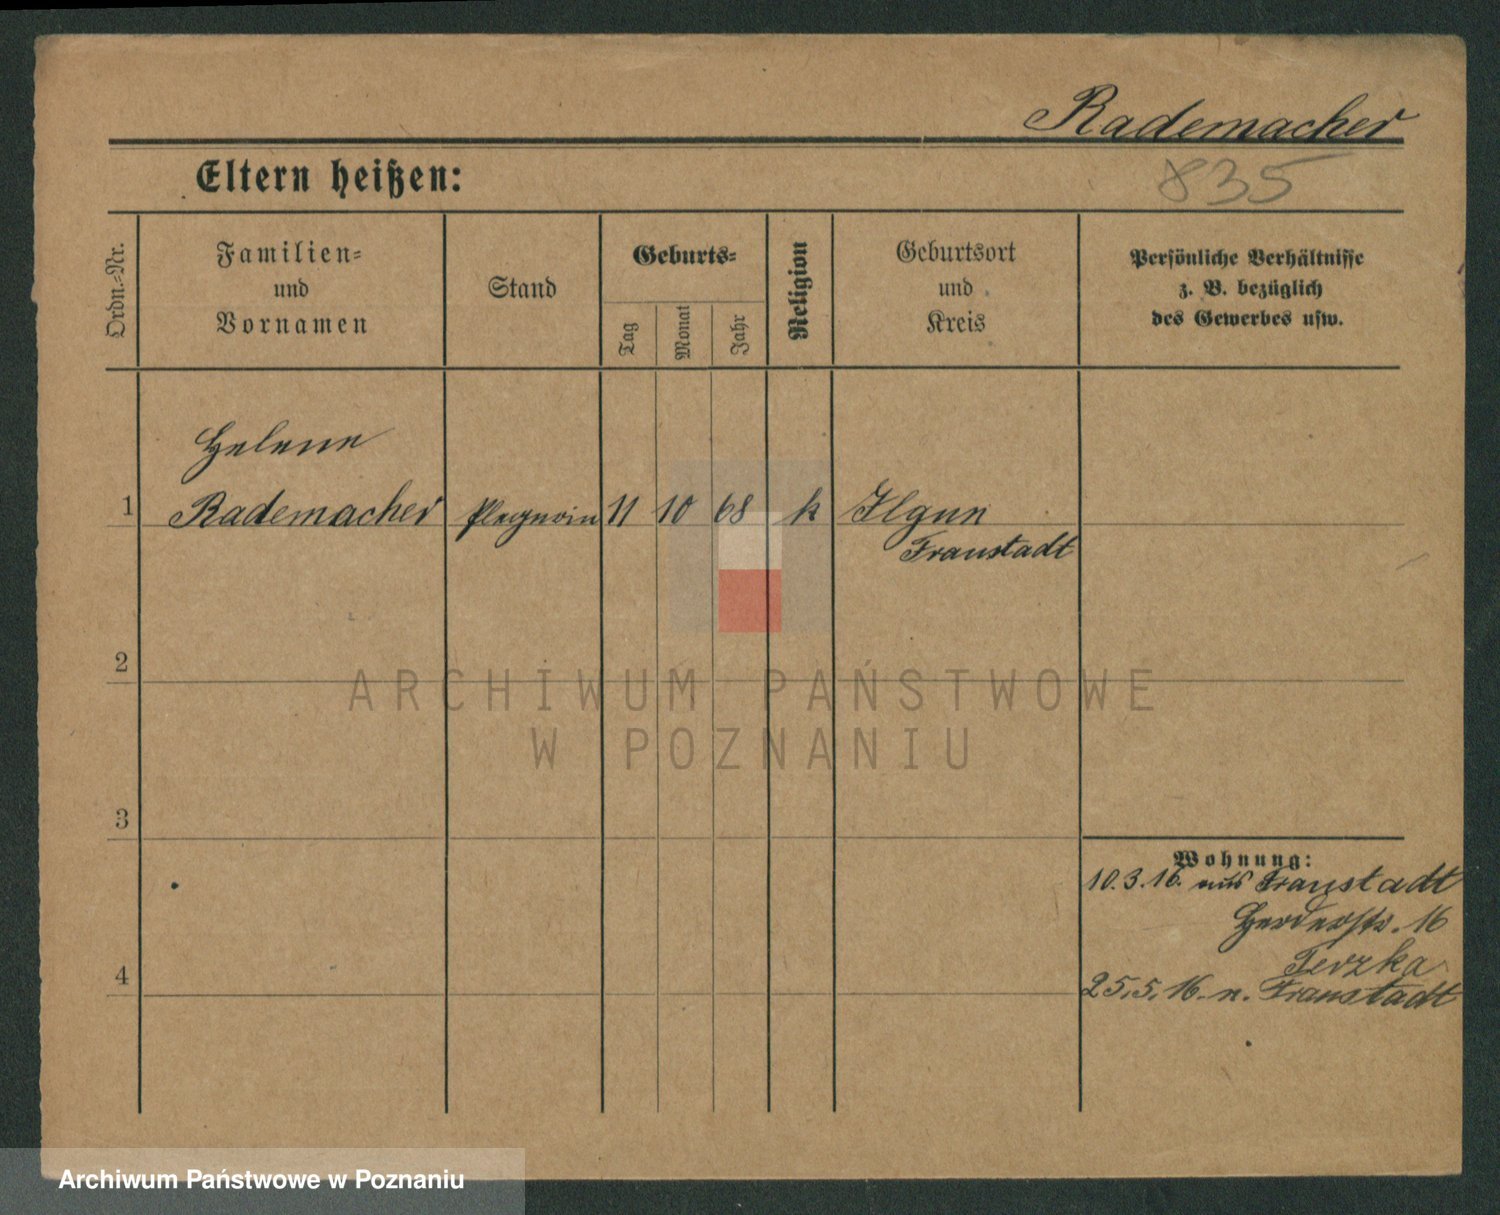 Rademacher
835
Eltern heißen:
Ordn.-Nr.
Familien-
und
Vornamen
Stand
Geburts-
Tag
Monat
Jahr
Religion
Geburtsort
und
Kreis
Persönliche Verhältnisse
z. B. bezüglich
des Gewerbes usw.
Helene
1 Rademacher Pflegerin 11 10 68 k Ilgen
Fraustadt
2
ARCHIWUM PAŃSTWOWE
W POZNANIU
3
Wohnung:
10.3.16. aus Fraustadt
Herderstr. 16
Terzka
4
25.5.16. n. Fraustadt
Archiwum Państwowe w Poznaniu